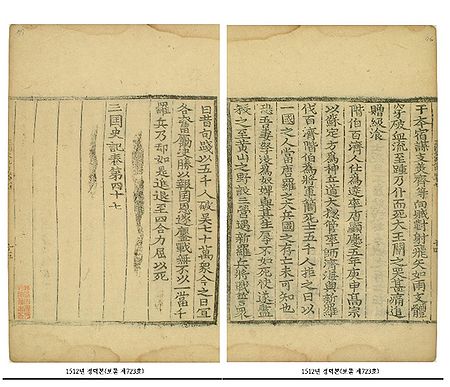 干本宿謀支美齊等向賊對射飛矢如雨支體
穿破血流至踵乃仆而死大王聞之哭甚痛追
贈級湌
階伯百濟人仕爲達率唐顯慶五年庚申高宗
以蘇定方爲神丘道大摠管率師濟海與新羅
伐百濟階伯爲將軍簡死士五千人拒之曰以
一國之人當唐羅之大兵國之存亡未可知也
恐吾妻孥沒爲奴婢與其生辱不如死快遂盡
殺之至黃山之野設三營遇新羅兵將戰誓衆
曰昔句踐以五千人破吳七十萬衆今之日宜
各奮勵決勝以報國恩遂鏖戰無不以一當千
羅兵乃却如是進退至四合力屈以死
三國史記卷第四十七
1512년 정덕본(보물 제723호)
1512년 정덕본(보물 제723호)